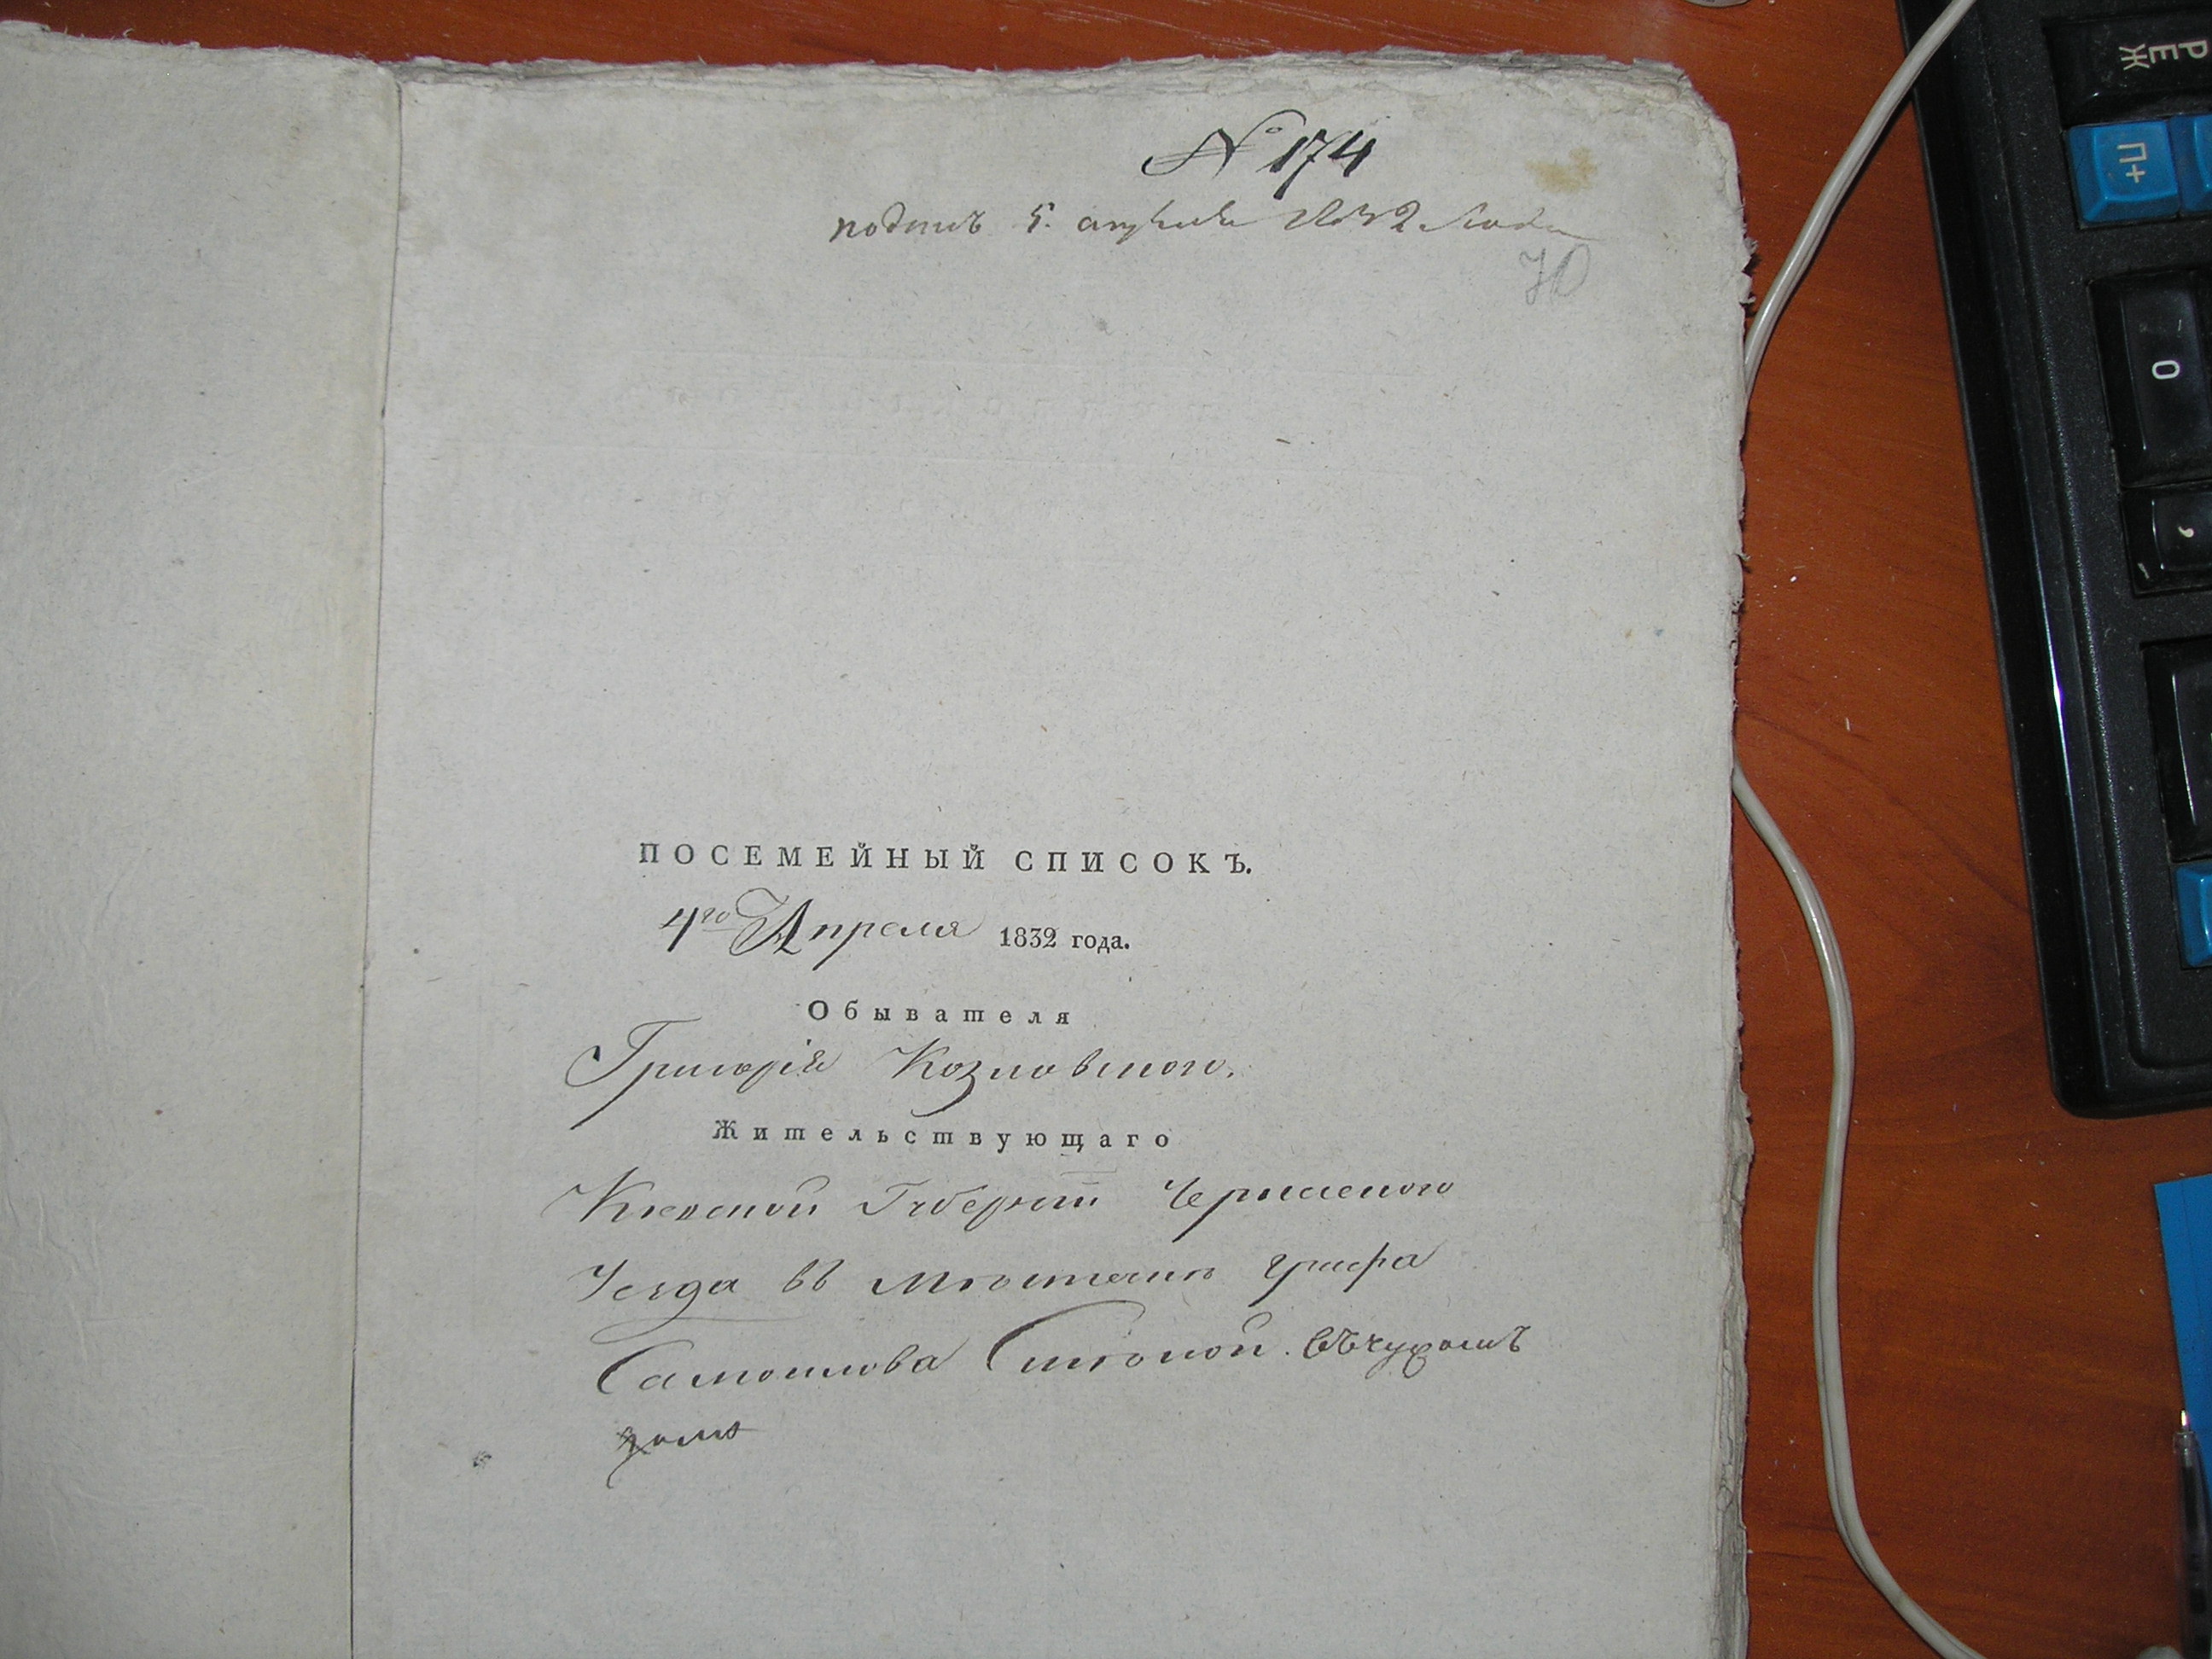 № 174
5. апреля 1832 года
70
ПОСЕМЕЙНЫЙ СПИСОКЪ.
4го Апреля 1832 года.
Обывателя
Григорія Козловского.
Жительствующаго
Киевской Губерніи Черкаского
Уезда въ Местечке графа
Самойлова Смелой.
РЕЖ
П+
0
,